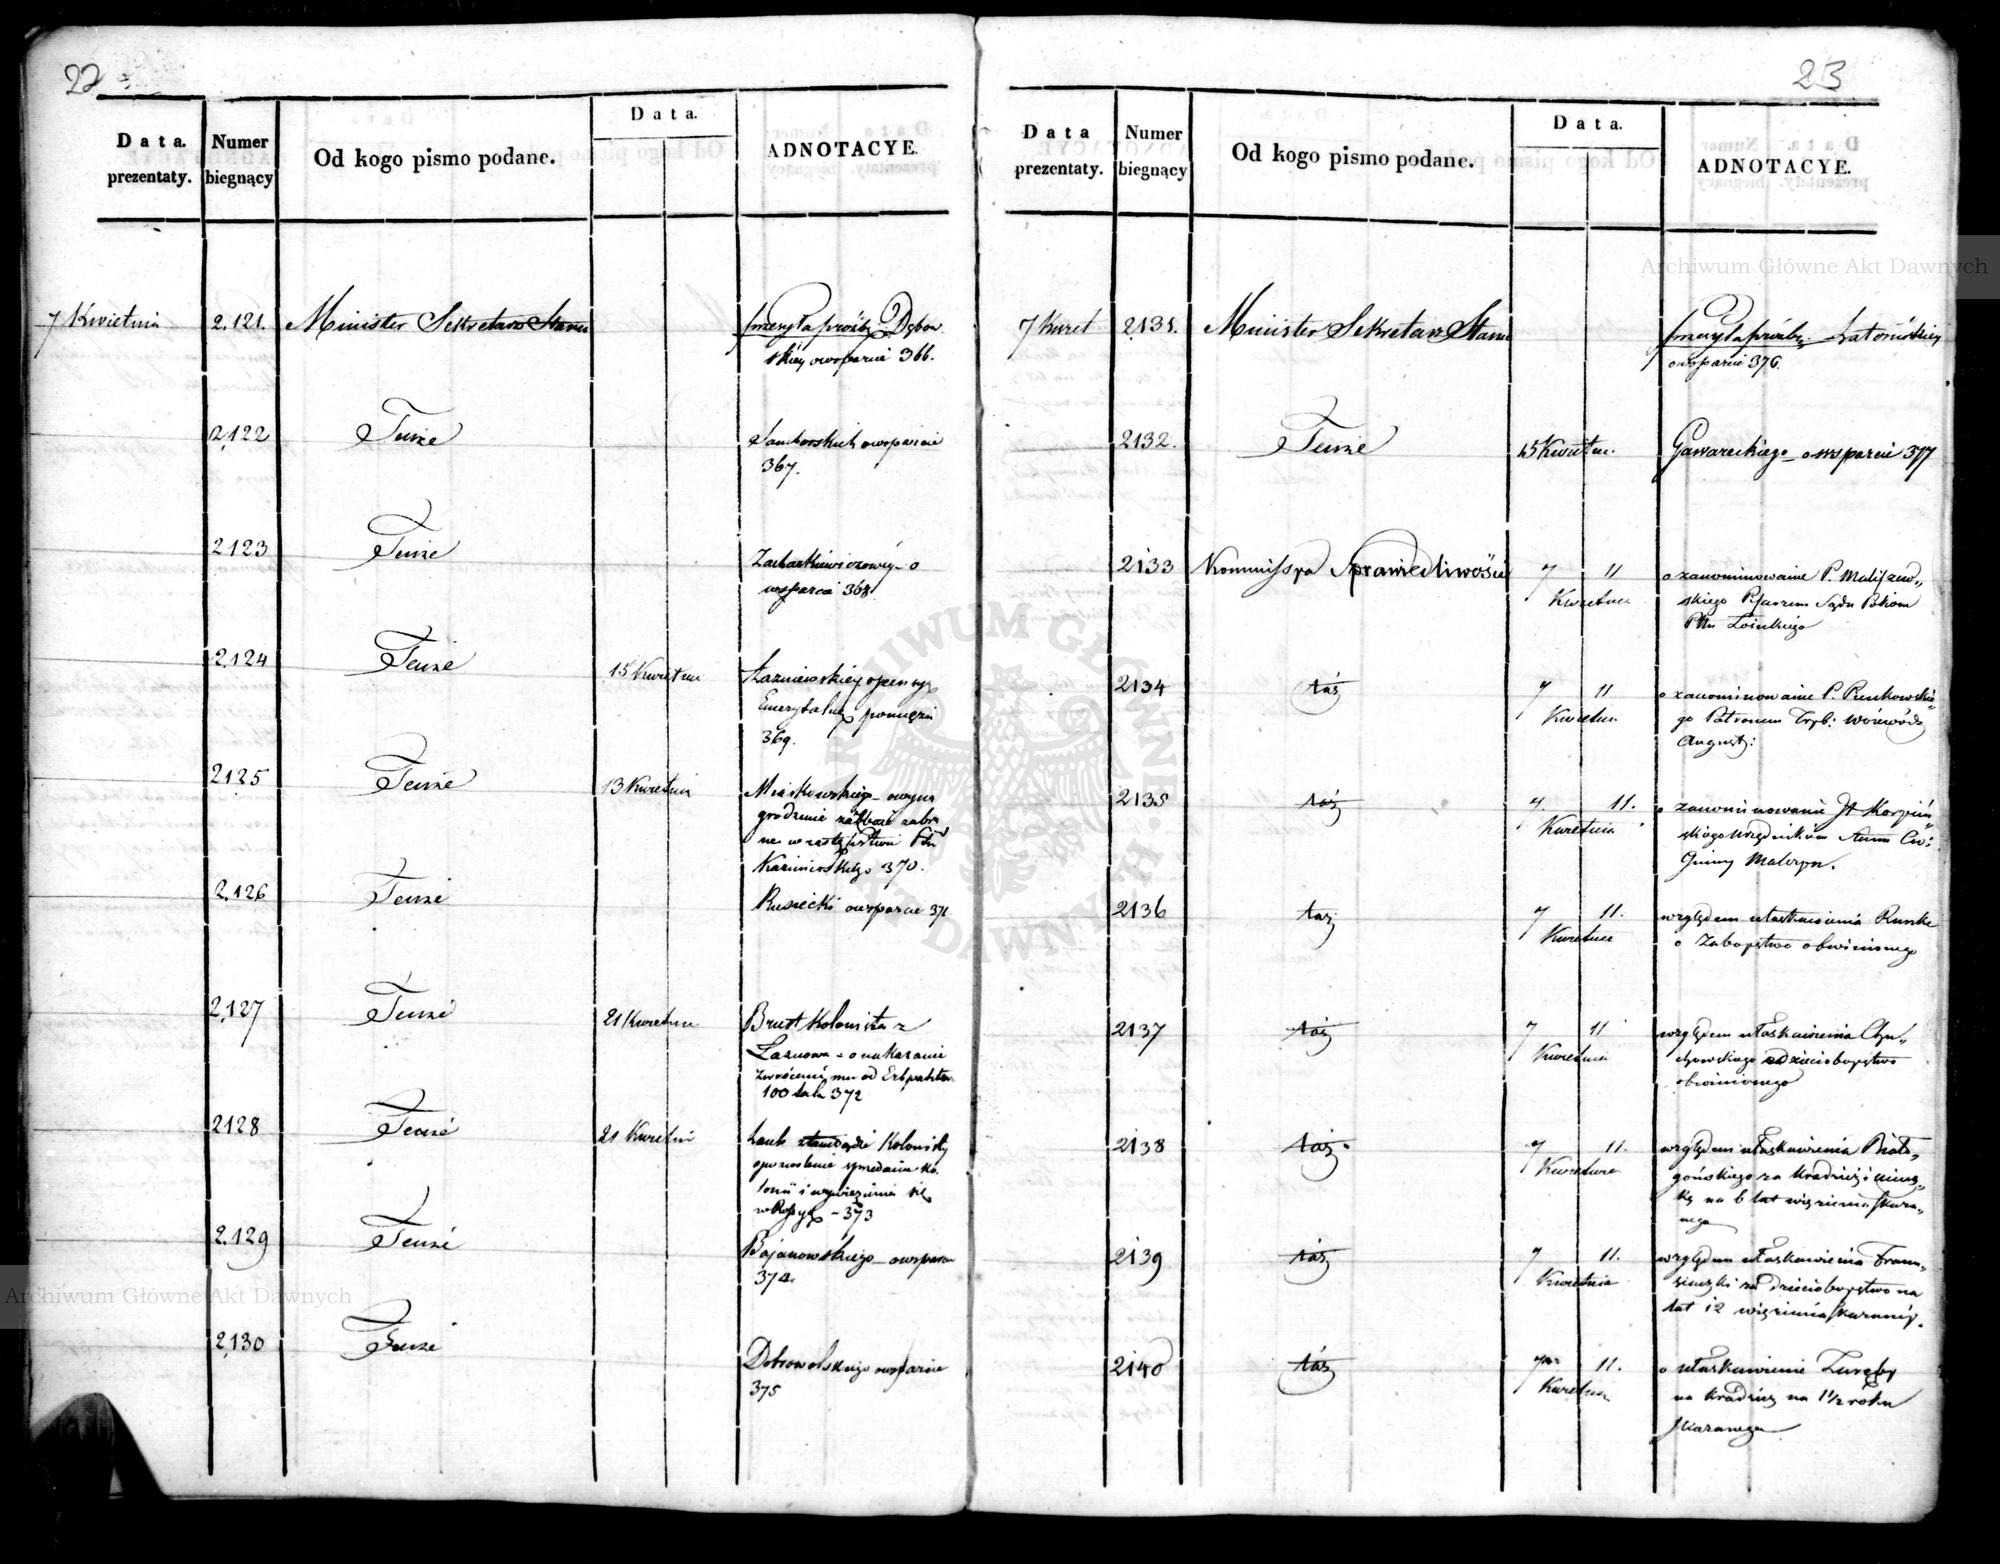 22
Data. prezentaty.
Numer biegnący
Od kogo pismo podane.
Data.
ADNOTACYE.
7 Kwietnia 2,121. Minister Sekretarz Stanu przesyła prośbę Dąbow
skiey o wsparcie 366.
2,122 Tenże Samborskich o wsparcie
367.
2,123 Tenże Zacharkiewiczowey o
wsparcie 368
2,124 Tenże 15 Kwietnia o pensyę
Emerytalną
369.
2,125 Tenże 13 Kwietnia Miaskowskiego o wyna
grodzenie za zboże zabra
ne w
Kazimierskiego 370.
2,126 Tenże Rusiecki o wsparcie 371
2,127 Tenże 21 Kwietnia Brust Kolonista z
Łaznowa - o nakazanie
zwrócenia mu od
100 tal. 372
2128 Tenże 21 Kwietnia Kolonisty
o pozwolenie sprzedania ko
lonii i wyniesienia się
w Rossyę - 373
2,129 Tenże Bojanowskiego o wsparcie
374.
2,130 Tenże Dobrowolskiego o wsparcie
375
23
Data prezentaty.
Numer biegnący
Od kogo pismo podane.
Data.
ADNOTACYE.
7 Kwiet 2131. Minister Sekretarz Stanu przesyła prośbę
o wsparcie 376.
2132. Tenże 15 Kwietn. Gawareckiego o wsparcie 377
2133 Kommissya Sprawiedliwości 7 Kwietnia 11 o zanominowanie P. Maliszew„
skiego Pisarzem Sądu Pokoju
Ptu Łosickiego
2134 taż 7 Kwietnia 11 o zanominowanie P. Pienkowskie„
go Patronem Tryb: Wojewódz
August:
2135 taż 7 Kwietnia 11. o zanominowanie
skiego Urzędnikiem Stanu Cw:
Gminy
2136 taż 7 Kwietnia 11. względem ułaskawienia Runke
o zabóystwo obwinionego
2137 taż 7 Kwietnia 11 względem ułaskawienia
o dzieciobóystwo
obwinionego
2138 taż 7 Kwietnia 11. względem ułaskawienia Biało„
gońskiego za kradzież i uciecz„
kę na 6 lat więzienia skaza„
nego
2139 taż 7 Kwietnia 11. względem ułaskawienia Fran„
ciszki za dzieciobóystwo na
lat 12 więzienia skazaney.
2140 taż 7 Kwietnia 11. o ułaskawienie Zaręby
za kradzież na 1 1/2 roku
skazanego
Archiwum Główne Akt Dawnych
Archiwum Główne Akt Dawnych
ARCHIWUM GŁÓWNE AKT DAWNYCH